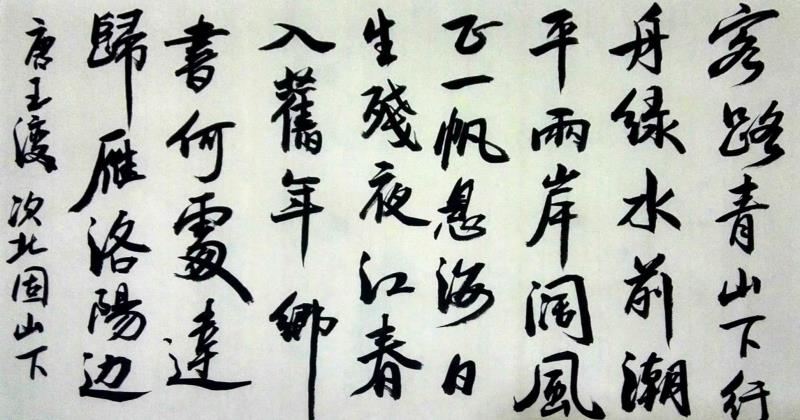 客路青山下行
舟绿水前潮
平兩岸阔風
正一帆悬海日
生殘夜江春
入舊年鄉
書何處達
歸雁洛陽边
唐王湾 次北固山下